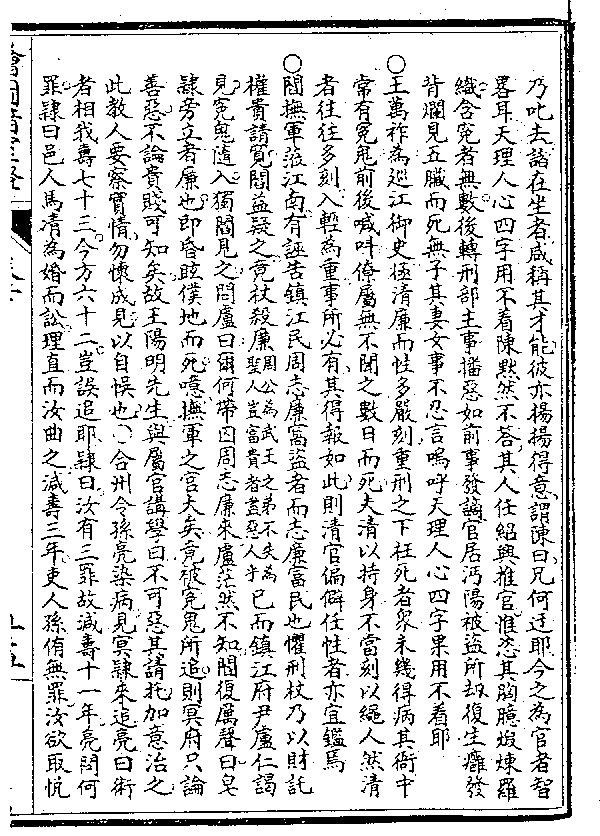 乃叱去諸在坐者咸稱其才能彼亦揚揚得意謂陳曰兄何迂耶今之為官者智
畧耳天理人心四字用不着陳默然不荅其人任紹興推官惟恣其胸臆煅煉羅
織含冤者無數後轉刑部主事播惡如前事發謫官居沔陽被盜所劫復生癰發
背爛見五臟而死無子其妻女事不忍言嗚呼天理人心四字果用不着耶
○王萬祚為巡江御史極清廉而性多嚴刻重刑之下枉死者衆未幾得病其衙中
常有冤鬼前後喊呌僚屬無不聞之數日而死夫清以持身不當刻以繩人然清
者往往多刻入輕為重事所必有其得報如此則清官偏僻任性者亦宜鑑焉
○閻撫軍涖江南有誣告鎮江民周志廉窩盜者而志廉富民也懼刑杖乃以財託
權貴請質閻益疑之竟杖殺廉周公為武王之弟不失為聖人豈富貴者盡惡人乎已而鎮江府尹盧仁謁
見冤鬼隨入獨閻見之問盧曰爾何帶囚周志廉來盧茫然不知閻復厲聲曰皂
隷旁立者廉也即昏眩僕地而死噫撫軍之官大矣竟被冤鬼所追則冥府只論
善惡不論貴賤可知矣故王陽明先生與屬官講學曰不可惡其請托加意治之
此教人要察實情勿懷成見以自悞也○合州令孫亮染病見冥隷來追亮曰術
者相我壽七十三今方六十二豈誤追耶隷曰汝有三罪故減壽十一年亮問何
罪隷曰邑人馬清為婚而訟理直而汝曲之減壽三年吏人孫侑無罪汝欲取忼